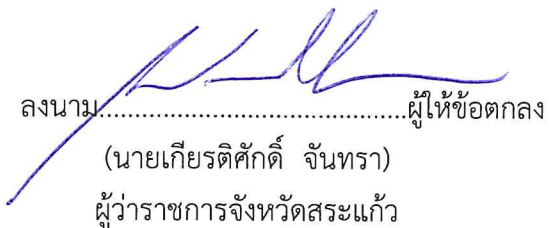 ลงนาม............................................ผู้ให้ข้อตกลง
(นายเกียรติศักดิ์ จันทรา)
ผู้ว่าราชการจังหวัดสระแก้ว